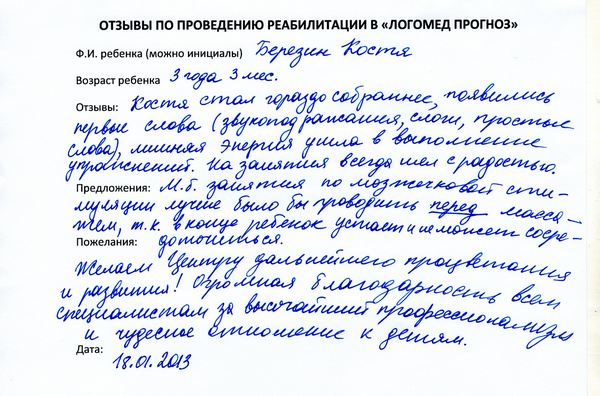 ОТЗЫВЫ ПО ПРОВЕДЕНИЮ РЕАБИЛИТАЦИИ В «ЛОГОМЕД ПРОГНОЗ»
Ф.И. ребенка (можно инициалы) Березин Костя
Возраст ребенка 3 года 3 мес.
Отзывы: Костя стал гораздо собраннее, появились
первые слова (звукоподражания, слоги, простые
слова), лишняя энергия ушла в выполнение
упражнений. На занятия всегда шел с радостью.
Предложения: М.б. занятия по мозжечковой сти-
муляции лучше было бы проводить перед масса-
жем, т.к. в конце ребенок устает и не может сосре-
Пожелания: доточиться.
Желаем Центру дальнейшего процветания
и развития! Огромная благодарность всем
специалистам за высочайший профессионализм
и чудесное отношение к детям.
Дата: 18.01.2013